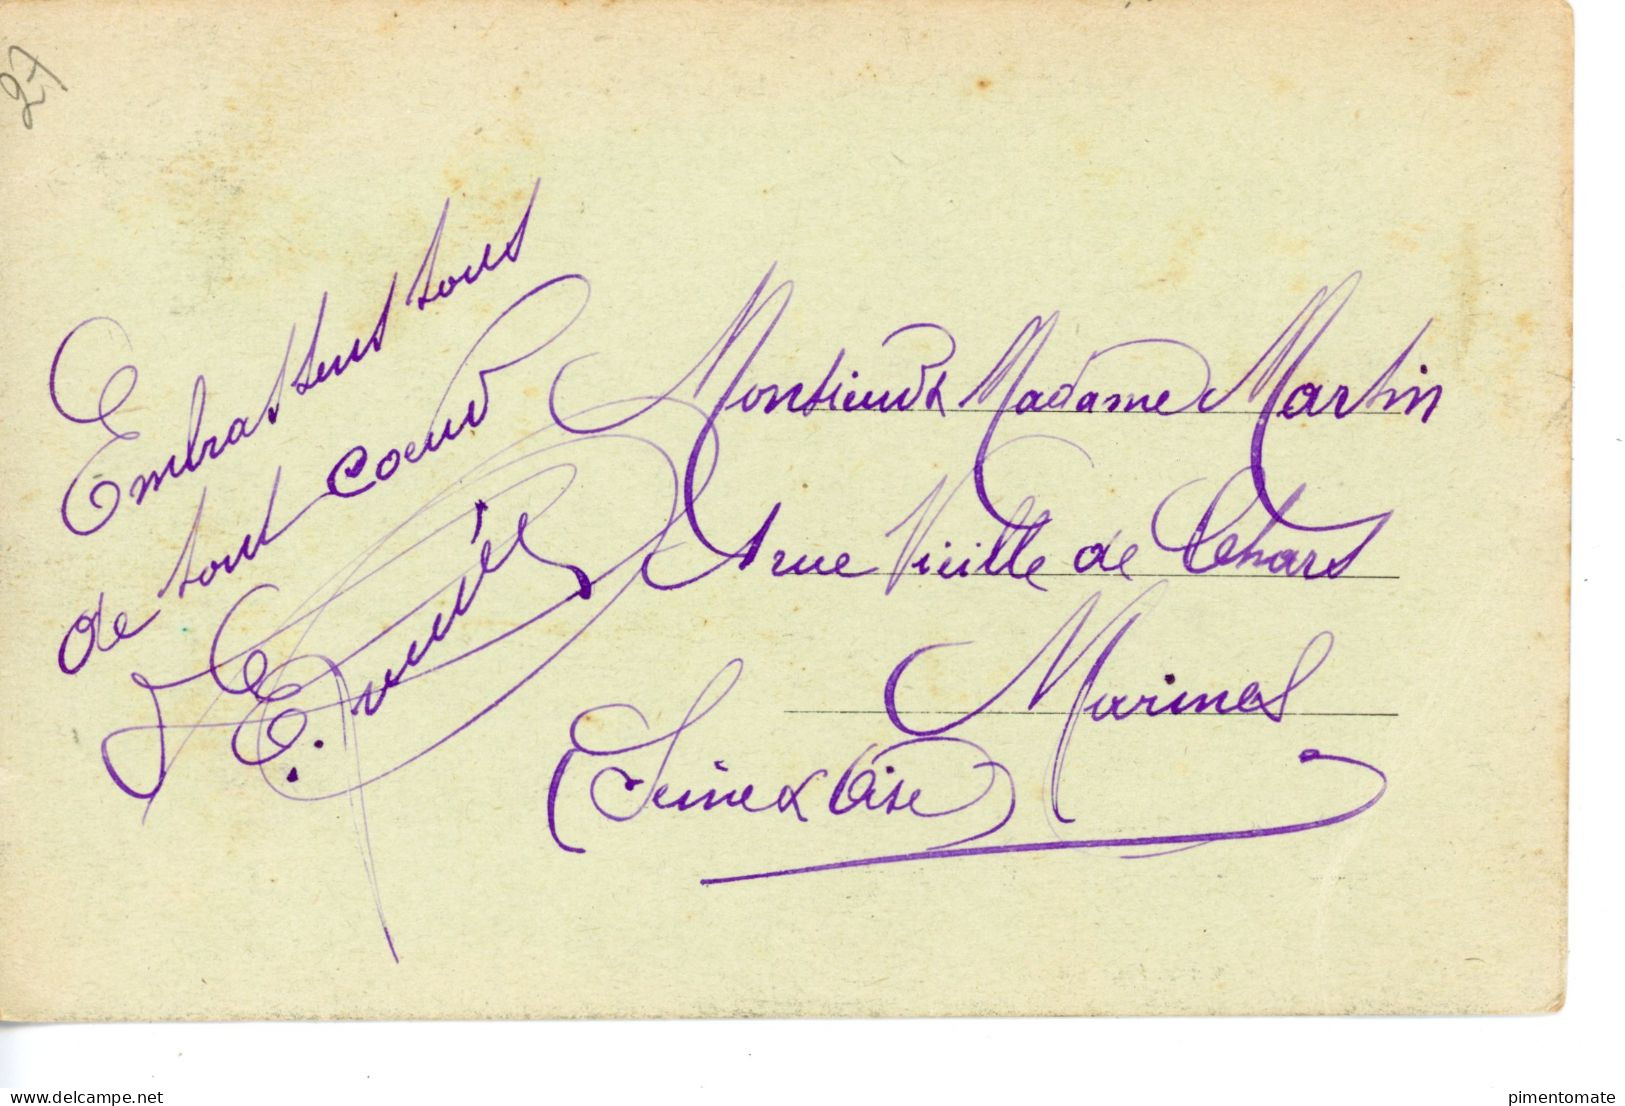 27
Embrassens tous
de tout coeur
E.
Monsieur & Madame Martin
rue Vieille de Chars
Marines
(Seine & Oise)
www.delcampe.net
pimentomate